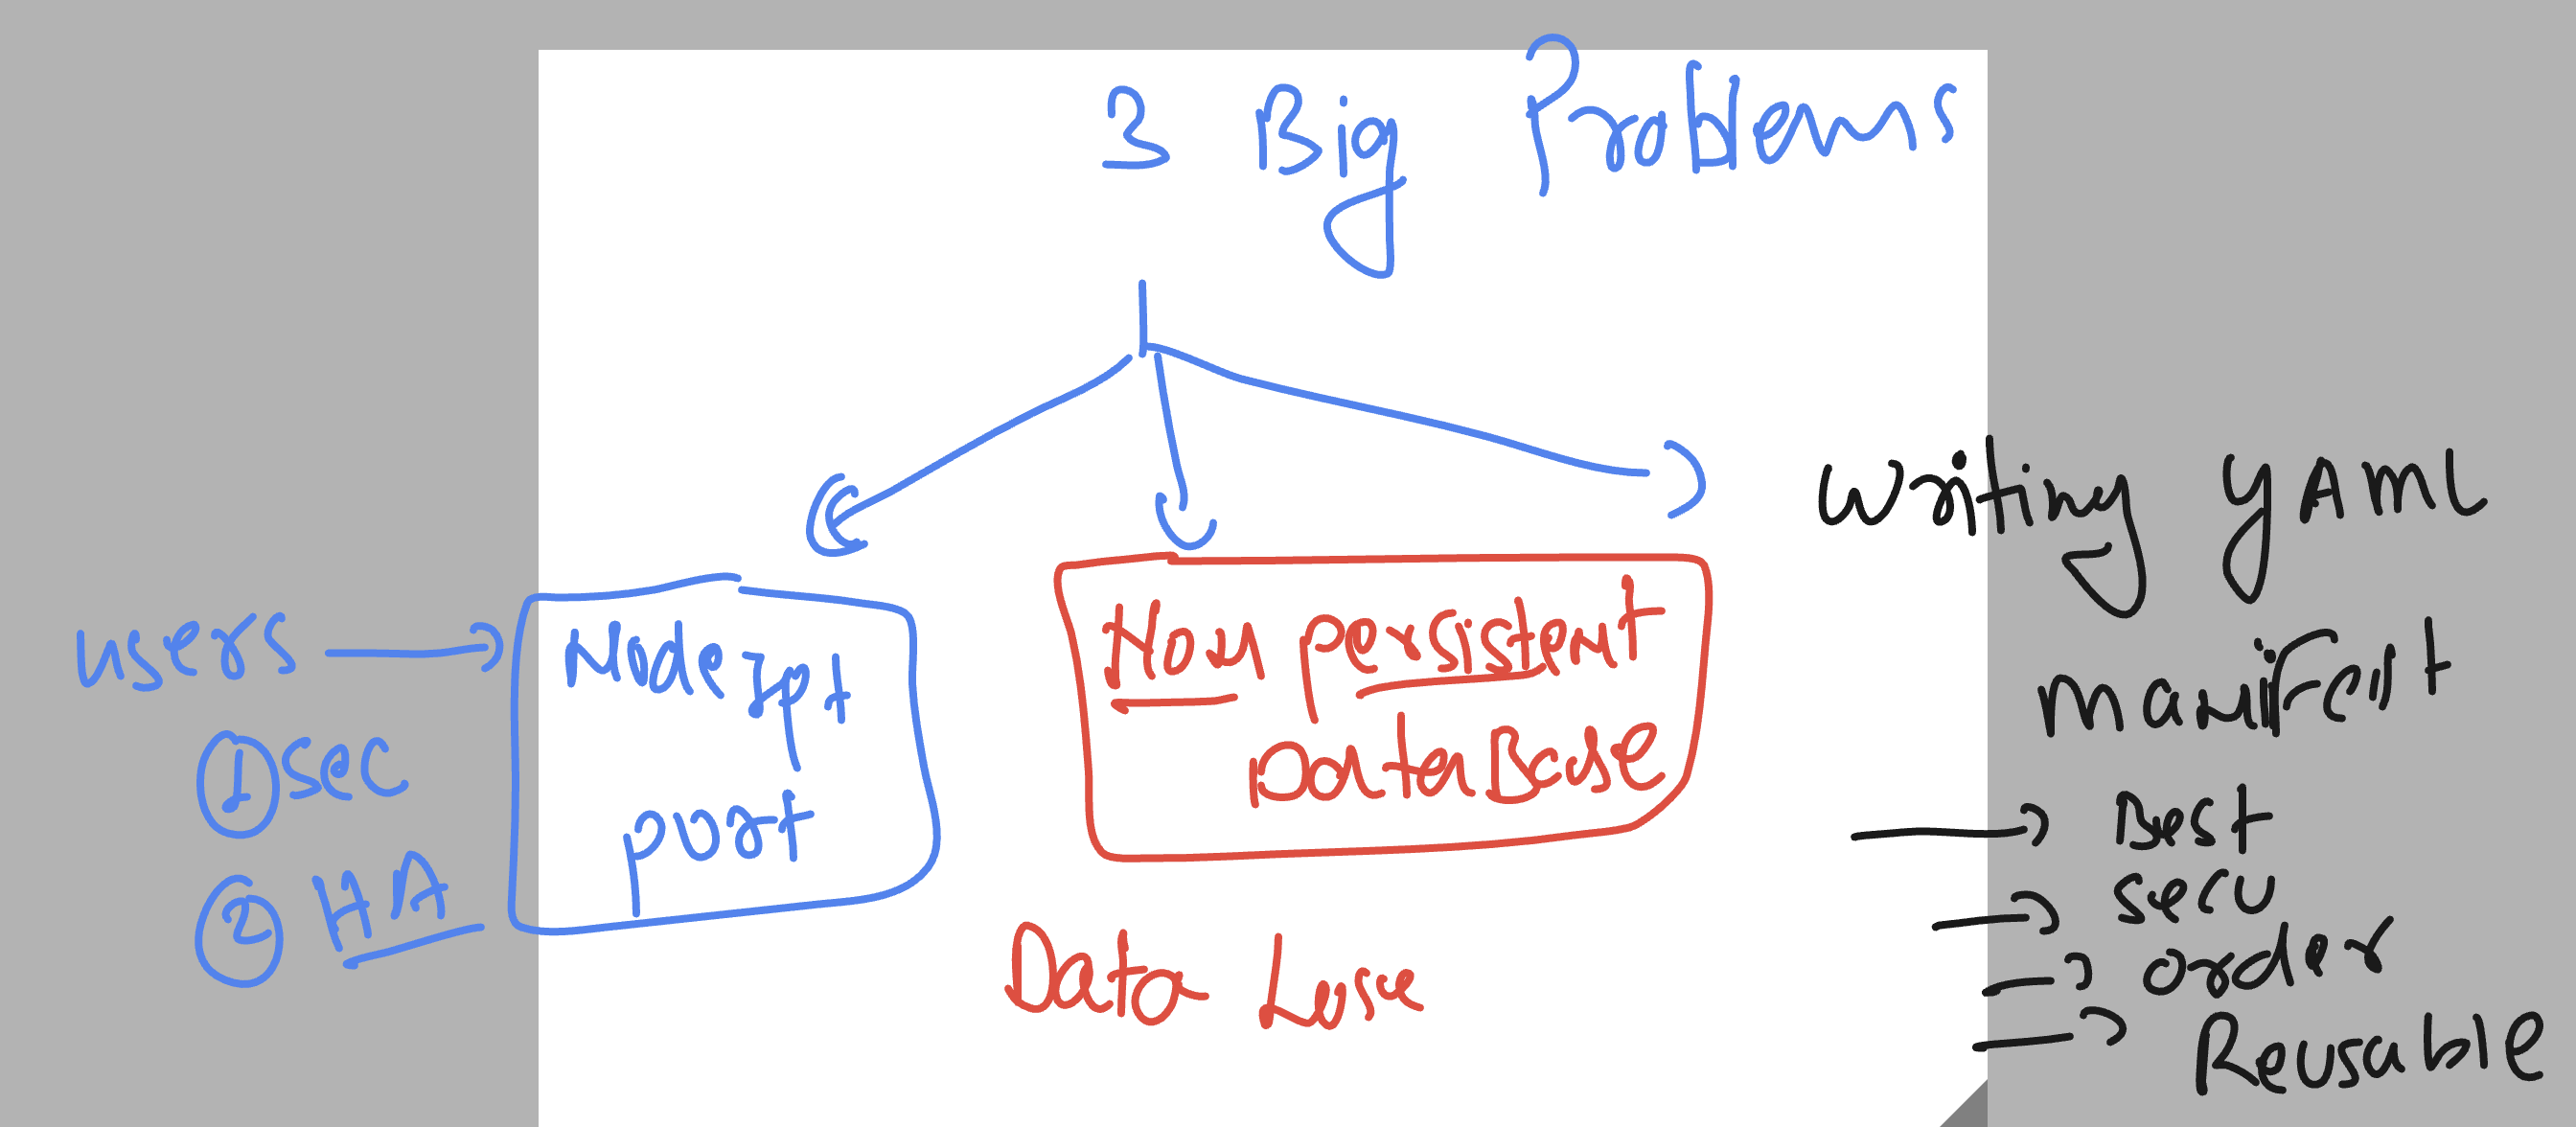 3 Big Problems
users
① sec
② HA
Node Ip
port
Non persistent
DataBase
Data Lose
Writing YAML
manifest
Best
secu
order
Reusable